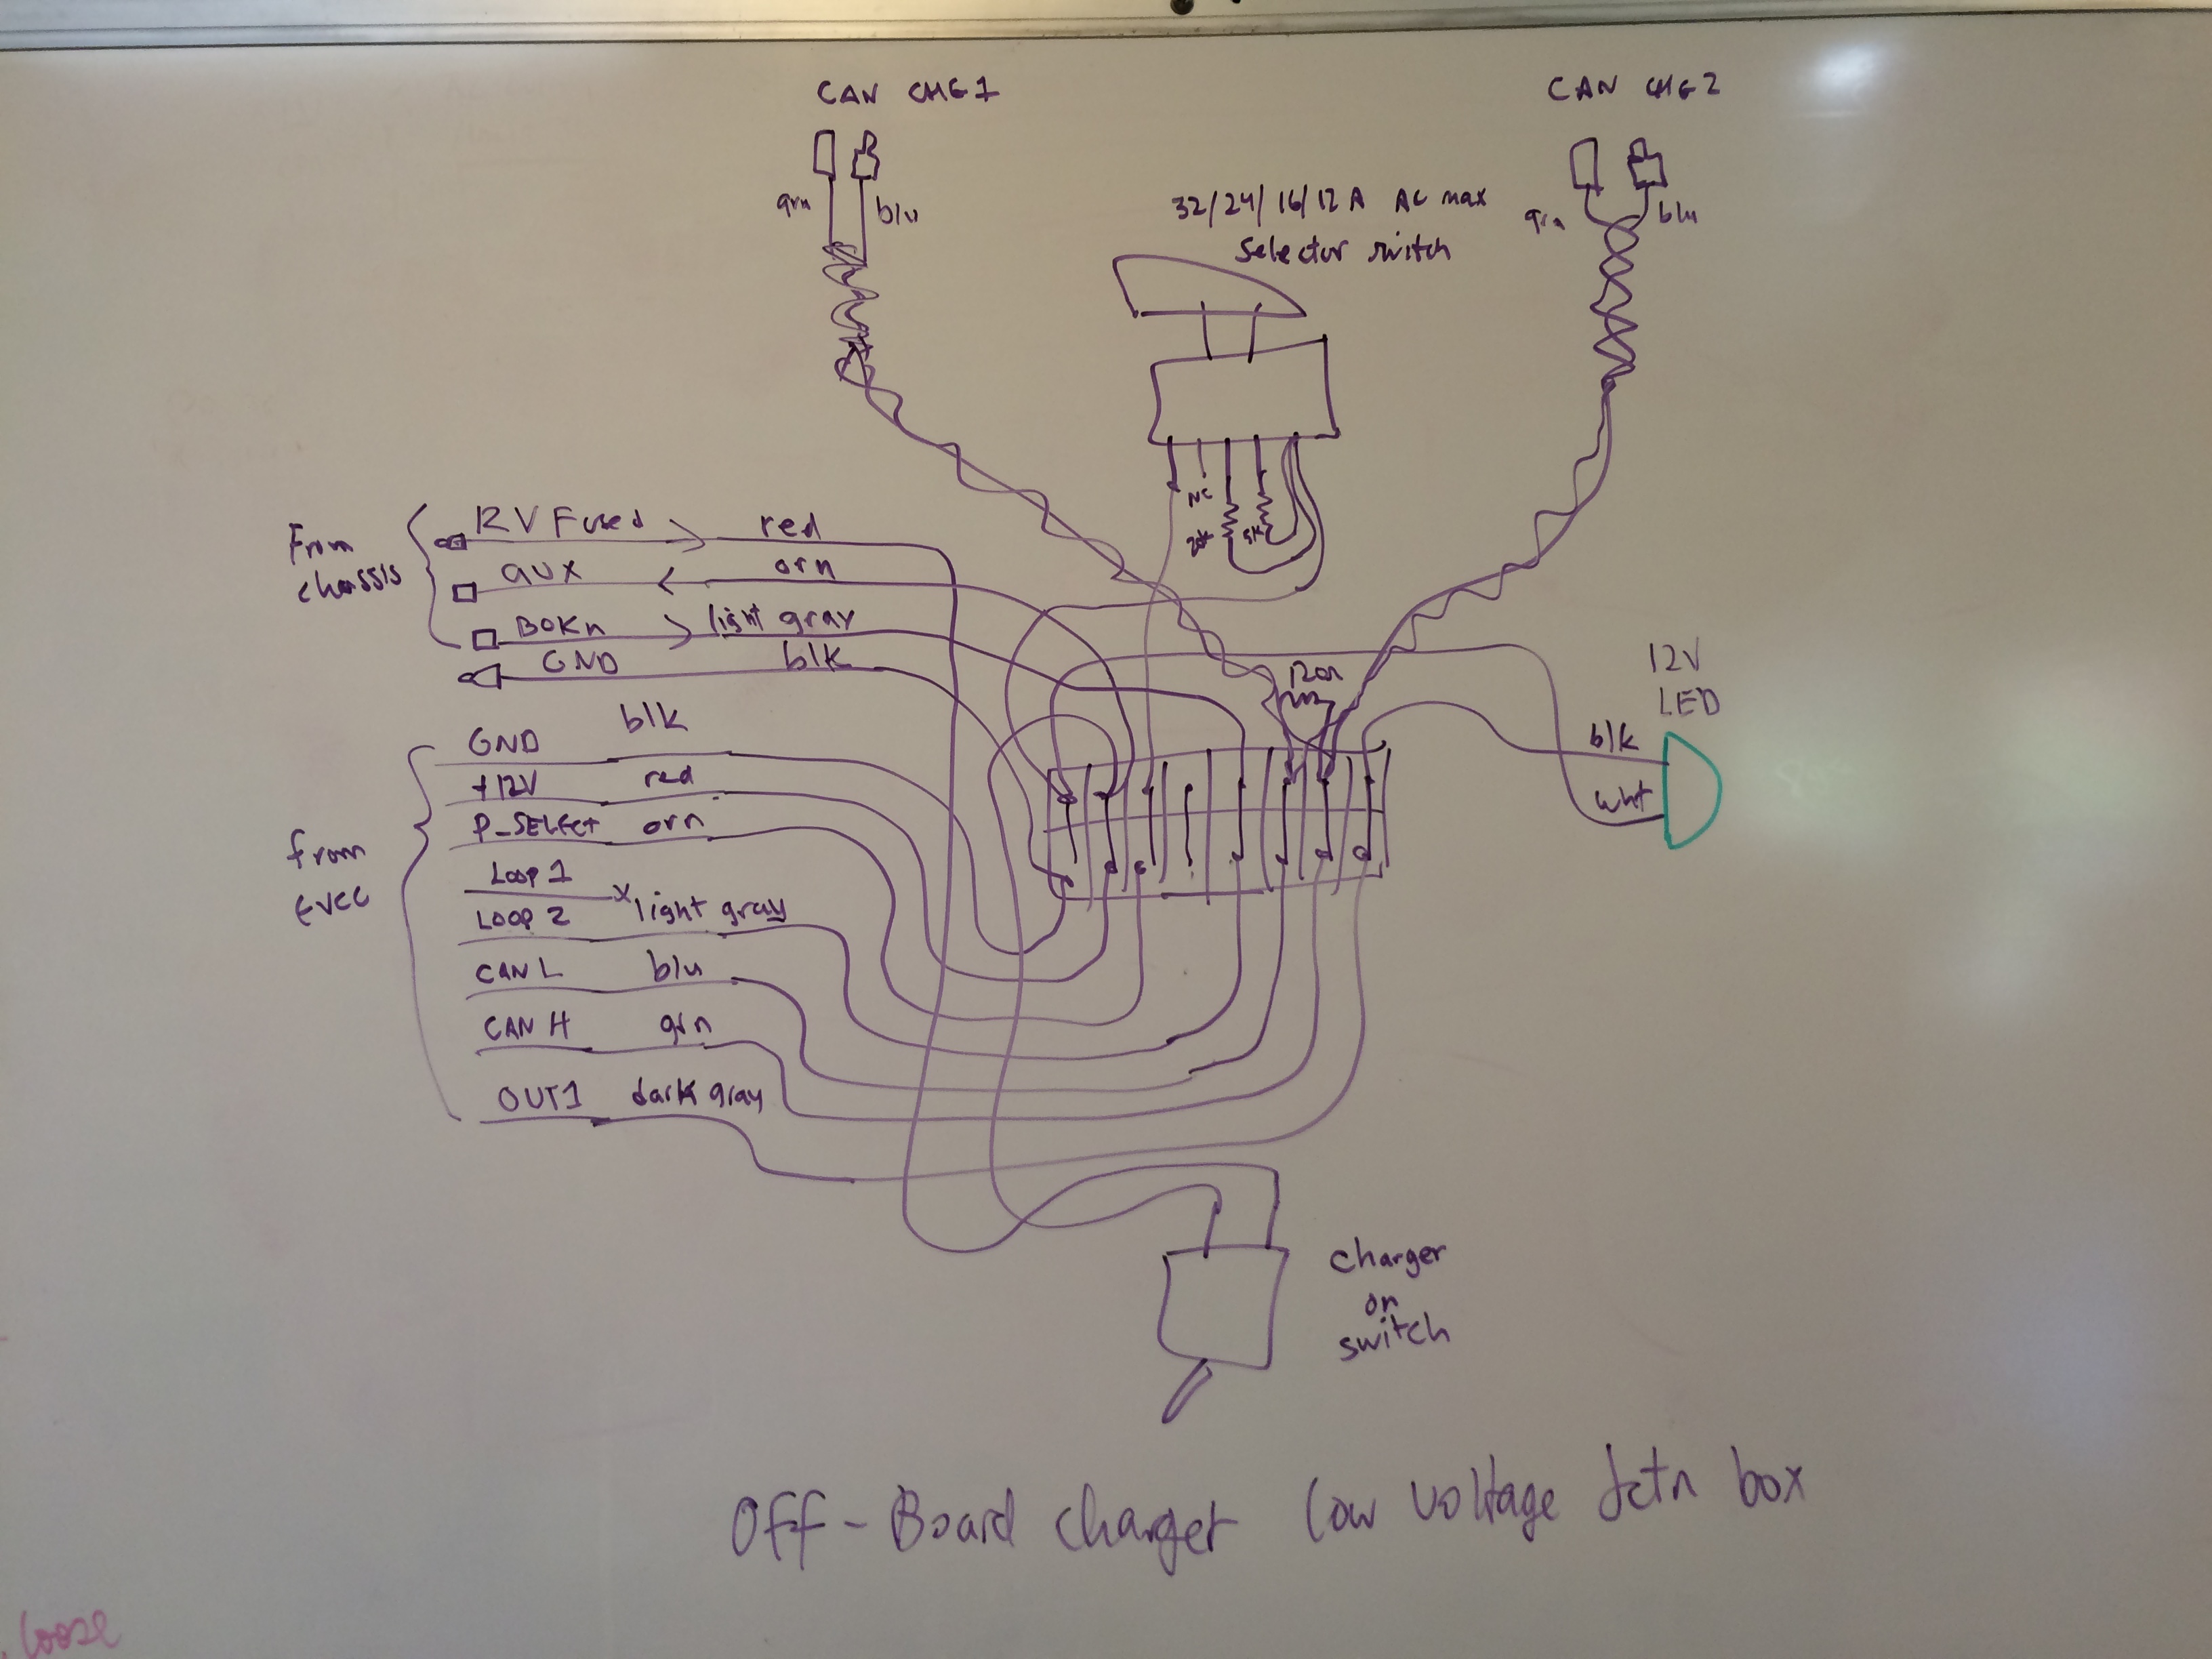 CAN CHG1
CAN CHG2
grn
blu
32/24/16/12A AC max
Selector switch
grn
blu
NC
20K
5K
From
chassis
12V Fused
red
aux
orn
BOKn
light gray
GND
blk
120Ω
12V
LED
blk
wht
from
EVCC
GND
blk
+12V
red
P_SELECT
orn
Loop 1
x
LOOP 2
light gray
CAN L
blu
CAN H
grn
OUT1
dark gray
charger
on
switch
Off-Board charger low voltage Jctn box
loose